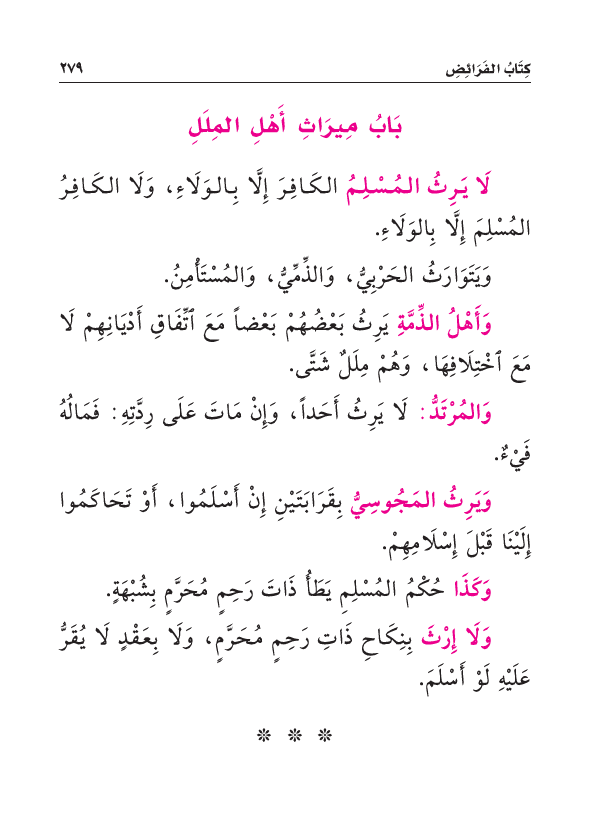 كِتَابُ الفَرَائِضِ
٢٧٩
بَابُ مِيرَاثِ أَهْلِ المِلَلِ
لَا يَرِثُ المُسْلِمُ الكَافِرَ إِلَّا بِالوَلَاءِ، وَلَا الكَافِرُ
المُسْلِمَ إِلَّا بِالوَلَاءِ.
وَيَتَوَارَثُ الحَرْبِيُّ، وَالذِّمِّيُّ، وَالمُسْتَأْمِنُ.
وَأَهْلُ الذِّمَّةِ يَرِثُ بَعْضُهُمْ بَعْضاً مَعَ ٱتِّفَاقِ أَدْيَانِهِمْ لَا
مَعَ ٱخْتِلَافِهَا، وَهُمْ مِلَلٌ شَتَّى.
وَالمُرْتَدُّ: لَا يَرِثُ أَحَداً، وَإِنْ مَاتَ عَلَى رِدَّتِهِ: فَمَالُهُ
فَيْءٌ.
وَيَرِثُ المَجُوسِيُّ بِقَرَابَتَيْنِ إِنْ أَسْلَمُوا، أَوْ تَحَاكَمُوا
إِلَيْنَا قَبْلَ إِسْلَامِهِمْ.
وَكَذَا حُكْمُ المُسْلِمِ يَطَأُ ذَاتَ رَحِمٍ مُحَرَّمٍ بِشُبْهَةٍ.
وَلَا إِرْثَ بِنِكَاحِ ذَاتِ رَحِمٍ مُحَرَّمٍ، وَلَا بِعَقْدٍ لَا يُقَرُّ
عَلَيْهِ لَوْ أَسْلَمَ.